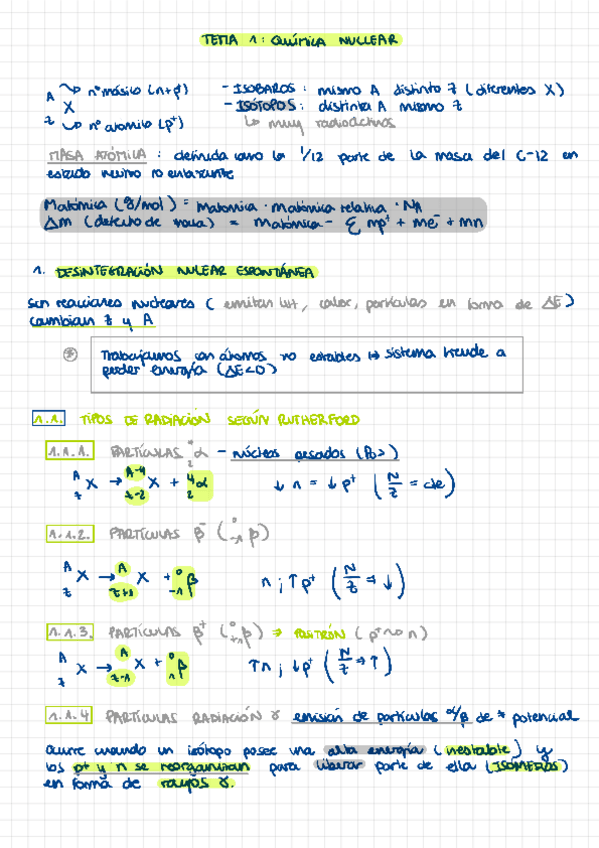 TEMA 1: QUÍMICA NUCLEAR
A → nº másico (n+p) - ISÓBAROS: mismo A distinto Z (diferentes X)
X - ISÓTOPOS: distinta A mismo Z
Z → nº atomico (p⁺) ↳ muy radioactivos
MASA ATÓMICA: definida como la 1/12 parte de la masa del C-12 en
estado neutro no enlazante
Matómica (g/mol) = matomica · matómica relativa · NA
Δm (defecto de masa) = matómica - Σ mp⁺ + me⁻ + mn
1. DESINTEGRACIÓN NULEAR ESPONTÁNEA
son reacciones nucleares ( emiten luz, calor, partículas en forma de ΔE)
cambian Z y A
Trabajamos con átomos no estables ↦ sistema tiende a
perder energía (ΔE<0)
1.1. TIPOS DE RADIACIÓN SEGÚN RUTHERFORD
1.1.1. PARTÍCULAS ⁴₂α - núcleos pesados (Pb>)
ᴬ_Z X → ᴬ⁻⁴_Z-2 X + ⁴₂α ↓ n = ↓ p⁺ (N/Z = cte)
1.1.2. PARTÍCULAS β⁻ (⁰₋₁β)
ᴬ_Z X → ᴬ_Z+1 X + ⁰₋₁β n ¡ ↑ p⁺ (N/Z ⇒ ↓)
1.1.3. PARTÍCULAS β⁺ (⁰₊₁β) ⇒ POSITRÓN (p⁺~>n)
ᴬ_Z X → ᴬ_Z-1 X + ⁰₁β ↑n ¡ ↓p⁺ (N/Z ⇒ ↑)
1.1.4 PARTÍCULAS RADIACIÓN γ emisión de partículas α/β de ≠ potencial
ocurre cuando un isótopo posee una alta energía (inestable) y
los p⁺ y n se reorganizan para liberar parte de ella (ISÓMEROS)
en forma de rayos γ.